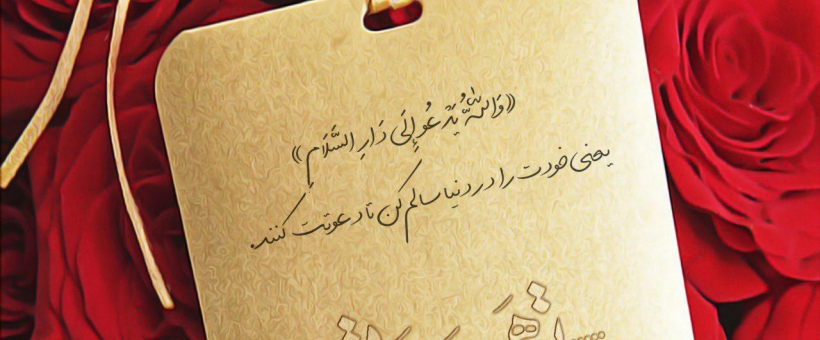 «وَاللَّهُ يَدْعُو إِلَى دَارِ السَّلَامِ»
یعنی خودت را در دنیا سالم کن تا دعوتت کنند.